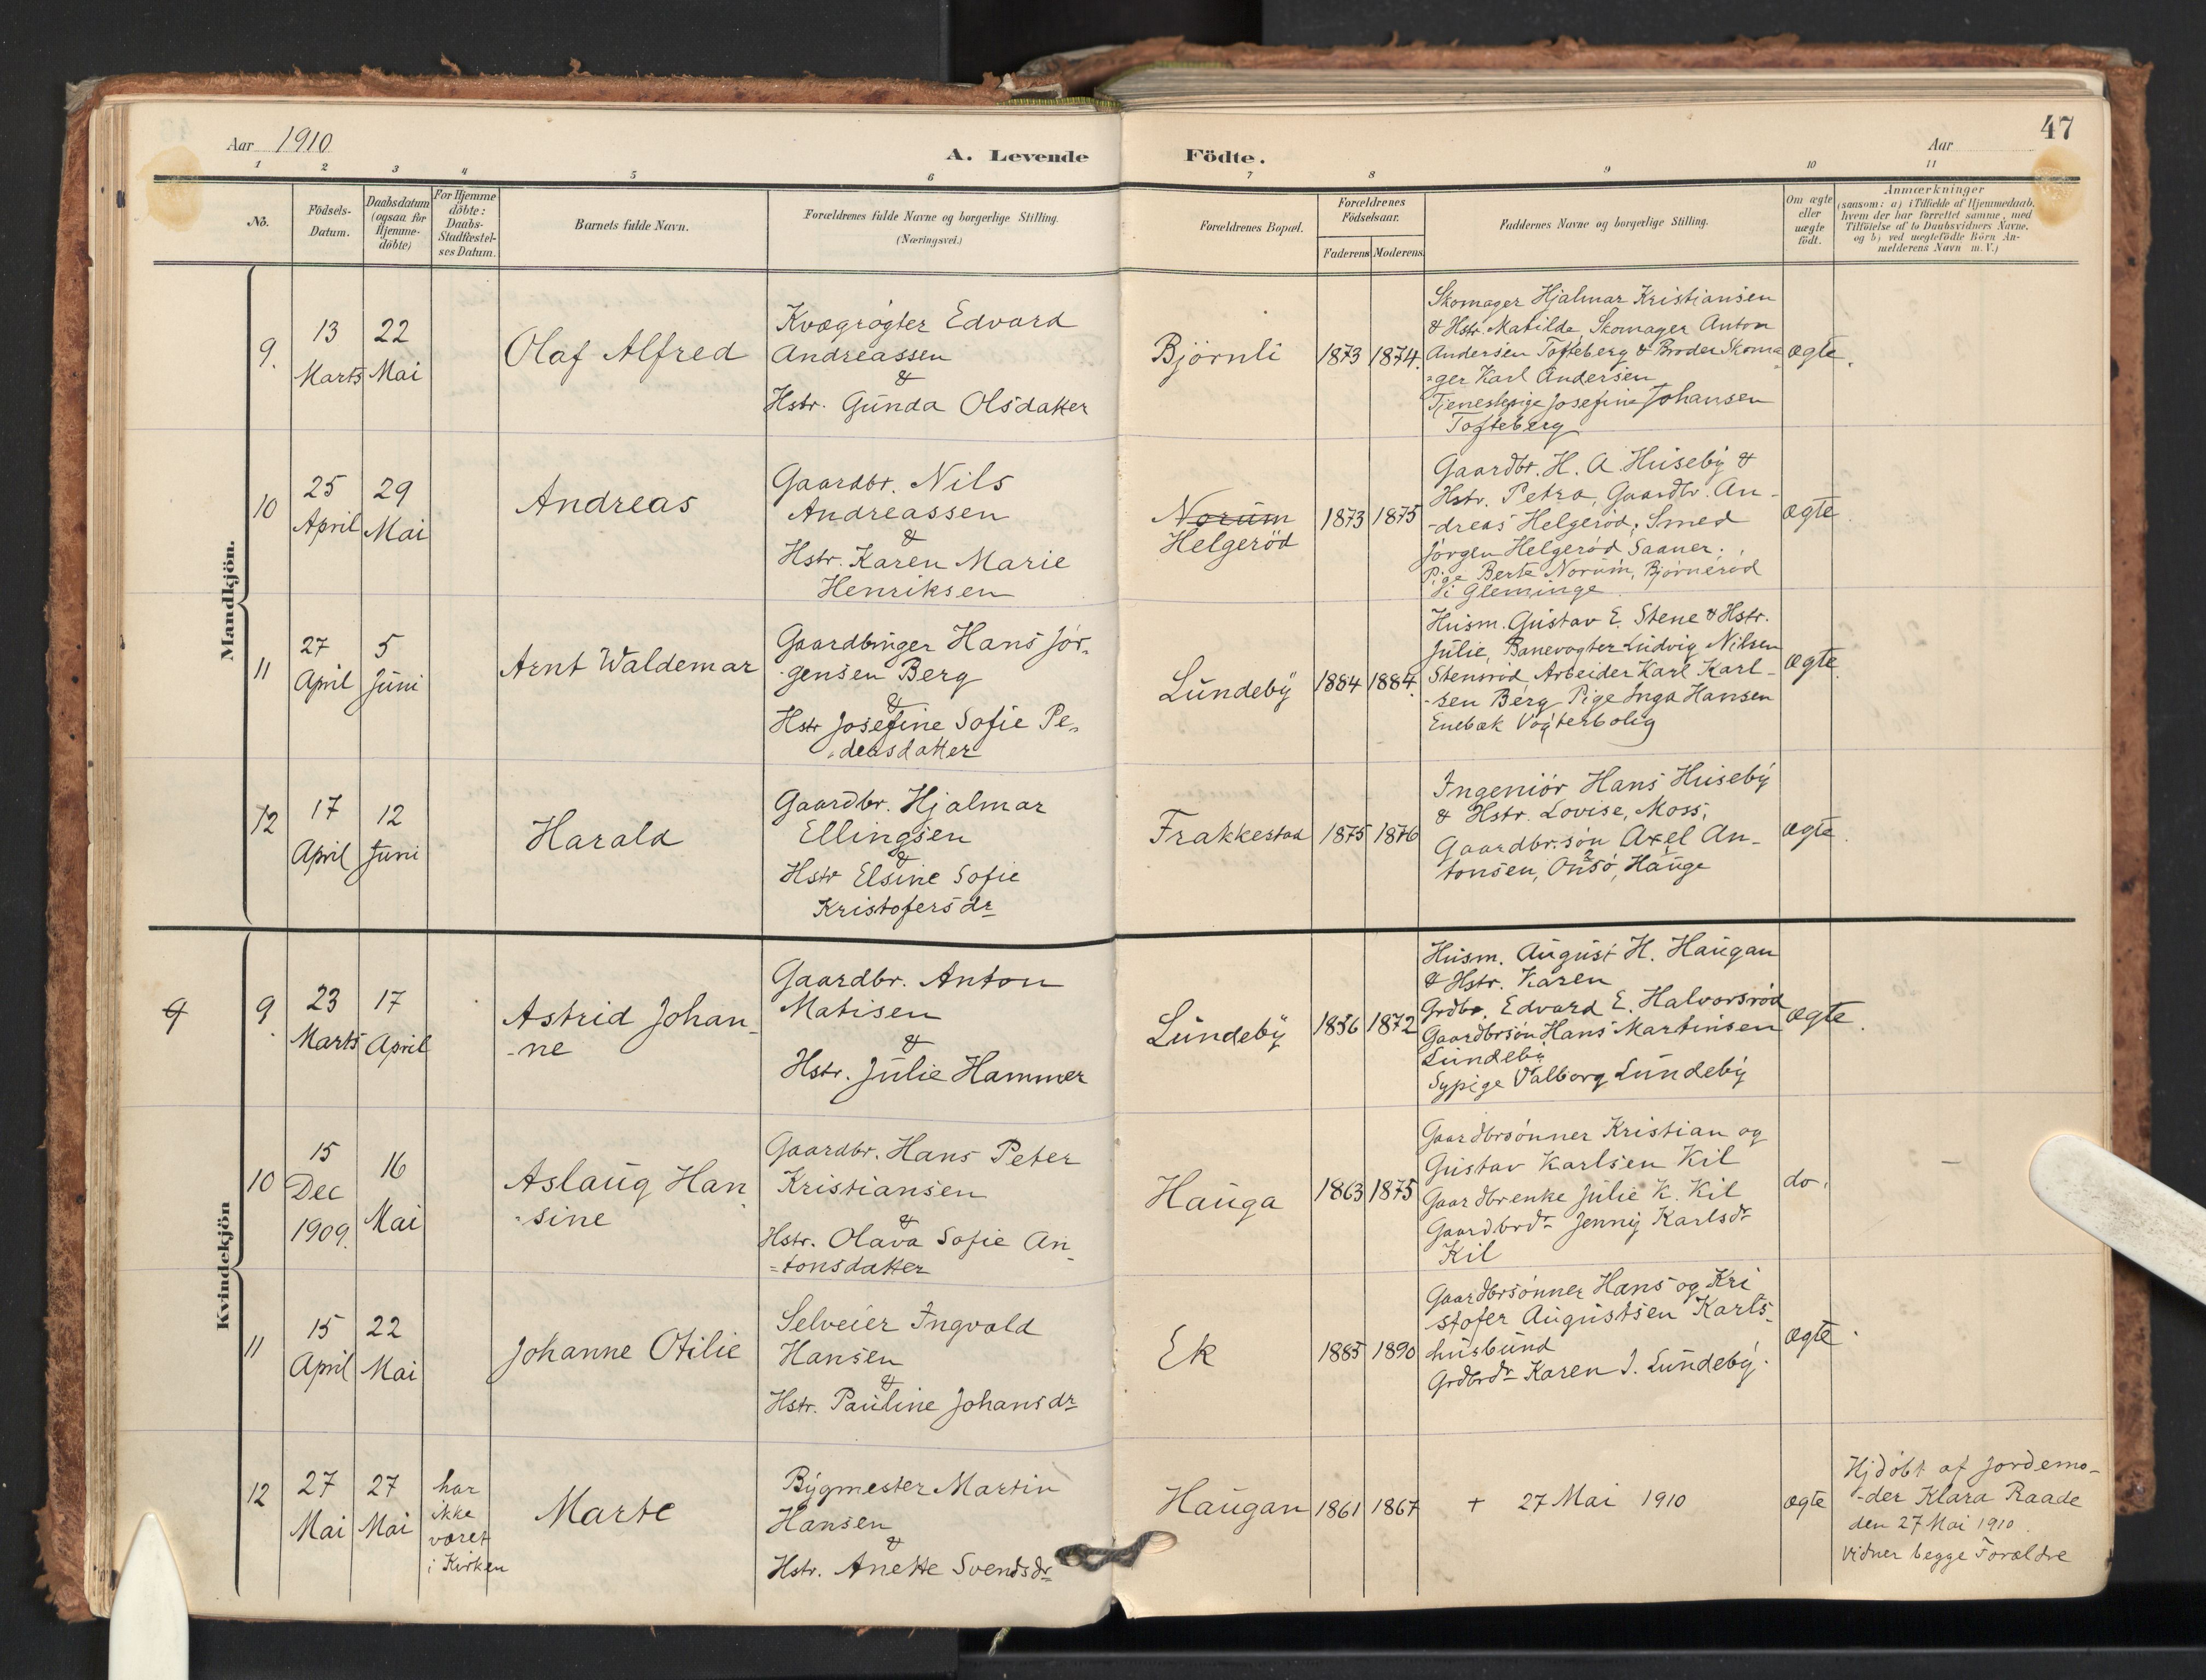 47
Aar 1910
A. Levende Födte.
Aar
1 2 3 4 5 6 7 8 9 10 11
No.
Födsels-
Datum.
Daabsdatum
(ogsaa for
Hjemme-
döbte)
For Hjemme
döbte:
Daabs-
Stadfæstel-
ses Datum.
Barnets fulde Navn.
Forældrenes fulde Navne og borgerlige Stilling.
(Næringsvei.)
Forældrenes Bopæl.
Forældrenes
Födselsaar.
Faderens Moderens
Faddernes Navne og borgerlige Stilling.
Om ægte
eller
uægte
födt.
Anmærkninger
(saasom: a) i Tilfælde af Hjemmedaab,
hvem der har forrettet samme, med
Tilföielse af to Daabsvidners Navne.
og b) ved uægtefödte Börn An-
melderens Navn m. V.)
Mandkjön.
9.
13
Marts
22
Mai
Olaf Alfred
Kvægrögter Edvard
Andreassen
&
Hstr. Gunda Olsdatter
Björnli
1873
1874.
Skomager Hjalmar Kristiansen
& Hstr. Matilde, Skomager Anton
Andersen Tofteberg & Broder Skoma=
=ger Karl Andersen
Tjenestepige Josefine Johansen
Tofteberg
ægte.
10
25
April
29
Mai
Andreas
Gaardbr. Nils
Andreassen
&
Hstr. Karen Marie
Henriksen
Norum
Helgeröd
1873
1875
Gaardbr. H. A. Huseby &
Hstr. Petra, Gaardbr. An-
-dreas Helgeröd, Smed
Jörgen Helgeröd, Saaner.
Pige Berte Norum, Björneröd
i Gleminge
ægte.
11
27
April
5
Juni
Arnt Waldemar
Gaardbruger Hans Jör-
-gensen Berg
&
Hstr Josefine Sofie Pe-
-dersdatter
Lundeby
1884
1884.
Husm. Gustav E. Stene & Hstr.
Julie, Banevogter Ludvig Nilsen
Stensröd, Arbeider Karl Karl-
-sen Berg, Pige Inga Hansen
Enebæk Vogterbolig
ægte.
12
17
April
12
Juni
Harald
Gaardbr. Hjalmar
Ellingsen
&
Hstr Elsine Sofie
Kristofersdr
Frakkestad
1875
1876
Ingeniör Hans Huseby
& Hstr. Lovise, Moss,
Gaardbr.sön Axel An-
tonsen, Onsö, Hauge
ægte.
Kvindekjön
9
9.
23
Marts
17
April
Astrid Johan-
-ne
Gaardbr. Anton
Matisen
&
Hstr. Julie Hammer
Lundeby
1856
1872
Husm. August H. Haugan
& Hstr. Karen
Grdbr. Edvard E. Halvorsröd
Gaardbrsön Hans Martinsen
Lundeby
Sypige Valborg Lundeby
ægte.
10
15
Dec
1909.
16
Mai
Aslaug Han-
-sine
Gaardbr. Hans Peter
Kristiansen
&
Hstr. Olava Sofie An-
=tonsdatter
Hauga
1863
1875
Gaardbrsönner Kristian og
Gustav Karlsen Kil
Gaardbrenke Julie K. Kil
Gaardbrdr Jenny Karlsdr
Kil
do.
11
15
April
22
Mai
Johanne Otilie
Selveier Ingvald
Hansen
&
Hstr. Pauline Johansdr
Ek
1885
1890
Gaardbrsönner Hans og Kri
stofer Augustsen Karls-
husbund
Grdbrdr Karen J. Lundeby.
ægte.
12
27
Mai
27
Mai
har
ikke
været
i Kirken
Marte
Bygmester Martin
Hansen
&
Hstr. Anette Svendsdr
Haugan
1861
1867
+ 27 Mai 1910
ægte
Hjdöbt af Jordemo-
-der Klara Raade
den 27 Mai 1910.
Vidner begge Forældre